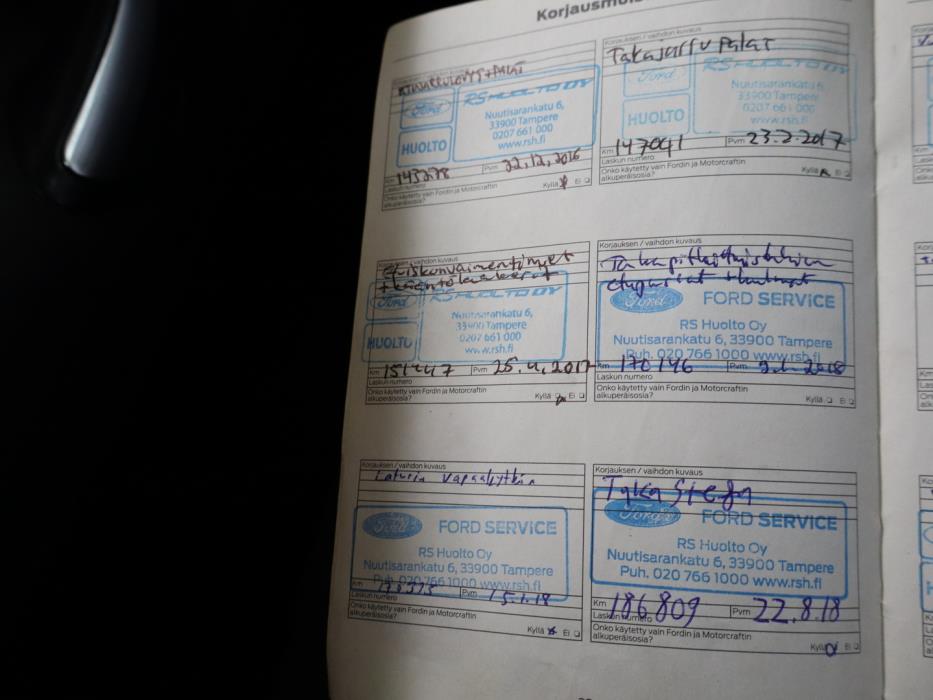 Korjausmuis
Korjauksen / vaihdon kuvaus
Ford
RS HUOLTO OY
Nuutisarankatu 6,
33900 Tampere
0207 661 000
www.rsh.fi
HUOLTO
Km 143278 Pvm 22.12.2016
Laskun numero
Onko käytetty vain Fordin ja Motorcraftin
alkuperäisosia? Kyllä Ei
Korjauksen / vaihdon kuvaus
Takajarru palat
Ford
RS HUOLTO OY
Nuutisarankatu 6,
33900 Tampere
0207 661 000
www.rsh.fi
HUOLTO
Km 147041 Pvm 23.2.2017
Laskun numero
Onko käytetty vain Fordin ja Motorcraftin
alkuperäisosia? Kyllä Ei
Korjauksen / vaihdon kuvaus
Etuiskunvaimentimet
Ford
RS HUOLTO OY
Nuutisarankatu 6,
33900 Tampere
0207 661 000
www.rsh.fi
HUOLTO
Km Pvm 25.4.2017
Laskun numero
Onko käytetty vain Fordin ja Motorcraftin
alkuperäisosia? Kyllä Ei
Korjauksen / vaihdon kuvaus
Ford FORD SERVICE
RS Huolto Oy
Nuutisarankatu 6, 33900 Tampere
Puh. 020 766 1000 www.rsh.fi
Km Pvm
Laskun numero
Onko käytetty vain Fordin ja Motorcraftin
alkuperäisosia? Kyllä Ei
Korjauksen / vaihdon kuvaus
Laturin
Ford FORD SERVICE
RS Huolto Oy
Nuutisarankatu 6, 33900 Tampere
Puh. 020 766 1000 www.rsh.fi
Km Pvm 15.1.18
Laskun numero
Onko käytetty vain Fordin ja Motorcraftin
alkuperäisosia? Kyllä Ei
Korjauksen / vaihdon kuvaus
Ford FORD SERVICE
RS Huolto Oy
Nuutisarankatu 6, 33900 Tampere
Puh. 020 766 1000 www.rsh.fi
Km 186.809 Pvm 22.8.18
Laskun numero
Onko käytetty vain Fordin ja Motorcraftin
alkuperäisosia? Kyllä Ei